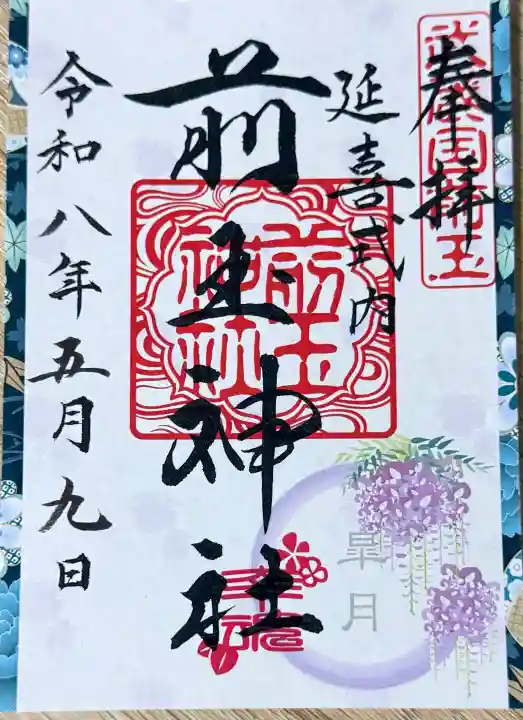 奉拝
延喜式内
前玉神社
前玉
神社
皐月
幸魂
令和八年五月九日